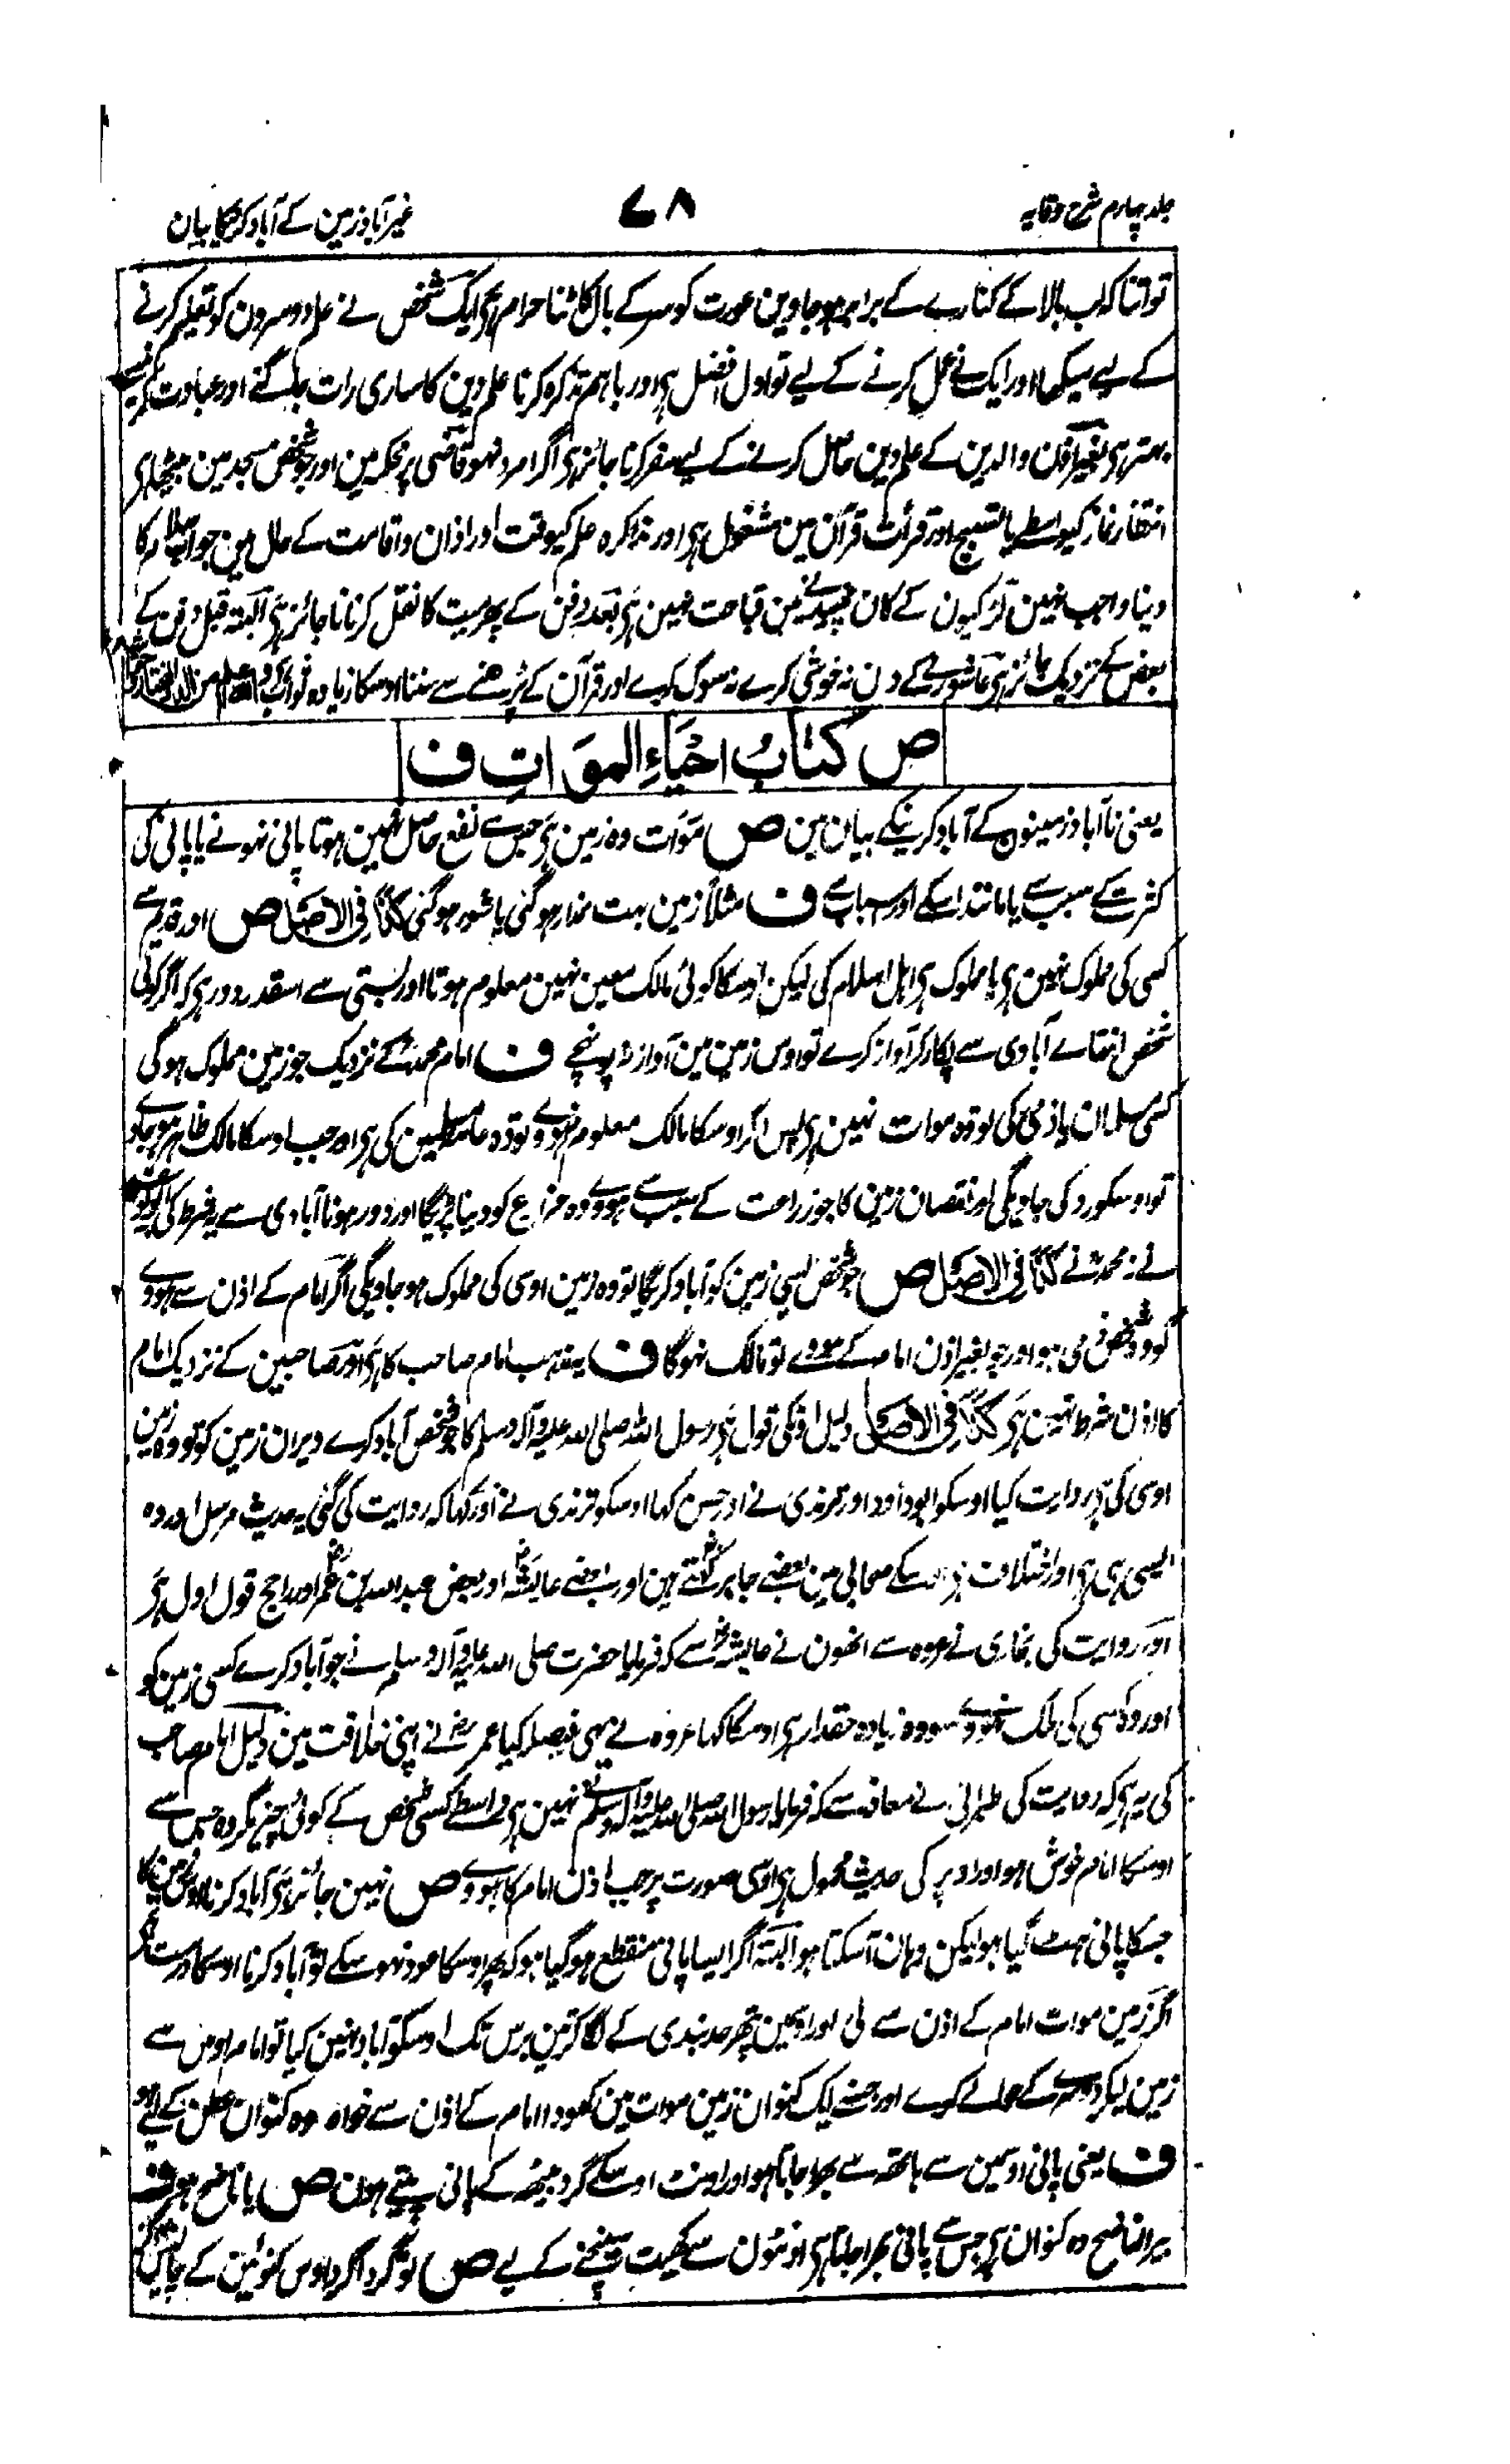 جلد چہارم شرح وقایہ
۷۸
غیر آباد زمین کے آباد کرنیکا بیان
تو اتنا کہ لب بالا کے کنارے کے برابر ہو جاوین عورت کو سر کے بال کاٹنا حرام ہی ایک شخص نے علم دوسرون کو تعلیم کرنے
کے لیے سیکھا اور ایک نے عمل کرنے کے لیے تو اول افضل ہی اور باہم تذکرہ کرنا علم دین کا ساری رات جاگنے اور عبادت کرنیسے
بہتر ہی بغیر اذن والدین کے علم دین حاصل کرنے کے لیے سفر کرنا جائز ہی اگر امرد نہو قاضی پر محکمہ مین اور جو شخص مسجد مین بیٹھا ہی
انتظار نماز کیواسطے یا تسبیح اور قرائت قرآن مین مشغول ہی اور مذاکرہ علم کیوقت اور اذان و اقامت کے حال مین جواب سلام کا
دینا واجب نہین لڑکیون کے کان چھیدنے مین قباحت نہین ہی بعد دفن کے پھر میت کا نقل کرنا ناجائز ہی البتہ قبل دفن کے
بعض کے نزدیک جائز ہی عاشورے کے دن نہ خوشی کرے نہ سوگ کرے اور قرآن کے پڑھنے سے سننا اوسکا زیادہ ثواب ہی واللہ اعلم من الدر المختار
ص كتاب احياء الموات ف
یعنی ناآباد زمینون کے آباد کرنیکے بیان مین ص موات وہ زمین ہی جس سے نفع حاصل نہین ہوتا پانی نہونے یا پانی کی
کثرت کے سبب سے یا مانند اسکے اور اسباب سے ف مثلاً زمین بہت نمدار ہو گئی یا شور ہو گئی كذا فى الاصل ص اور قدیم سے
کسی کی مملوک نہین ہی یا مملوک ہی اہل اسلام کی لیکن اوسکا کوئی مالک معین نہین معلوم ہوتا اور بستی سے اسقدر دور ہی کہ اگر کوئی
شخص انتہاے آبادی سے پکار کر آواز کرے تو اوس زمین مین آواز نہ پہونچے ف امام محمد کے نزدیک جو زمین مملوک ہو گی
کسی مسلمان یا ذمی کی تو وہ موات نہین ہی پس اگر اوسکا مالک معلوم نہووے تو وہ عامۂ مسلمین کی ہی اور جب اوسکا مالک ظاہر ہو جاوے
تو اوسکو رد کی جاویگی اور نقصان زمین کا جو زراعت کے سبب سے ہووے وہ مزارع کو دینا پڑیگا اور دور ہونا آبادی سے یہ شرط کی ابو یوسف
نے نہ محمد نے كذا فى الاصل ص جو شخص ایسی زمین کو آباد کریگا تو وہ زمین اوسی کی مملوک ہو جاویگی اگر امام کے اذن سے ہووے
گو وہ شخص ذمی ہو اور جو بغیر اذن امام کے ہووے تو مالک نہوگا ف یہ مذہب امام صاحب کا ہی اور صاحبین کے نزدیک امام
کا اذن شرط نہین ہی كذا فى الاصل دلیل اونکی قول ہی رسول اللہ صلی اللہ علیہ وآلہ وسلم کا جو شخص آباد کرے ویران زمین کو تو وہ زمین
اوسی کی ہی روایت کیا اوسکو ابو داؤد اور ترمذی نے اور حسن کہا اوسکو ترمذی نے اور کہا کہ روایت کی گئی یہ حدیث مرسل اور وہ
ایسی ہی ہی اور اختلاف ہی اسکے صحابی مین بعضے جابر کہتے ہین اور بعضے عایشہ اور بعض عبد اللہ بن عمر اور راجح قول اول ہی
اور روایت کی بخاری نے عروہ سے انھون نے عایشہ سے کہ فرمایا حضرت صلی اللہ علیہ وآلہ وسلم نے جو آباد کرے کسی زمین کو
اور وہ کسی کی ملک نہووے سو وہ زیادہ حقدار ہی اوسکا کہا عروہ نے یہی فیصلہ کیا عمر نے اپنی خلافت مین دلیل امام صاحب
کی یہ ہی کہ روایت کی طبرانی نے معاذ سے کہ فرمایا رسول اللہ صلی اللہ علیہ وآلہ وسلم نے نہین ہی واسطے کسی شخص کے کوئی چیز مگر وہ جس سے
اوسکا امام خوش ہو اور اوپر کی حدیث محمول ہی اوسی صورت پر جب اذن امام کا ہووے ص نہین جائز ہی آباد کرنا اوس زمین کا
جسکا پانی ہٹ گیا ہو لیکن وہان آسکتا ہو البتہ اگر ایسا پانی منقطع ہو گیا ہو کہ پھر اوسکا عود نہو سکے تو آباد کرنا اوسکا درست ہی
اگر زمین موات امام کے اذن سے لی اور اوسمین پتھر حد بندی کے لگا کر تین برس تک اوسکو آباد نہین کیا تو امام اوس سے
زمین لیکر دوسرے کے حوالے کرے اور جسنے ایک کنوان زمین موات مین کھودا امام کے اذن سے خواہ وہ کنوان عطن کے لیے ہو
ف یعنی پانی اوسمین سے ہاتھ سے بھرا جاتا ہو اور اونٹ اوسکے گرد بیٹھ کے پانی پیتے ہون ص یا ناضح ہو ف
بیر الناضح وہ کنوان ہی جس سے پانی بھرا جاتا ہی اونٹون سے کھیت سینچنے کے لیے ص تو گرداگرد اوس کنوئین کے چالیس گز